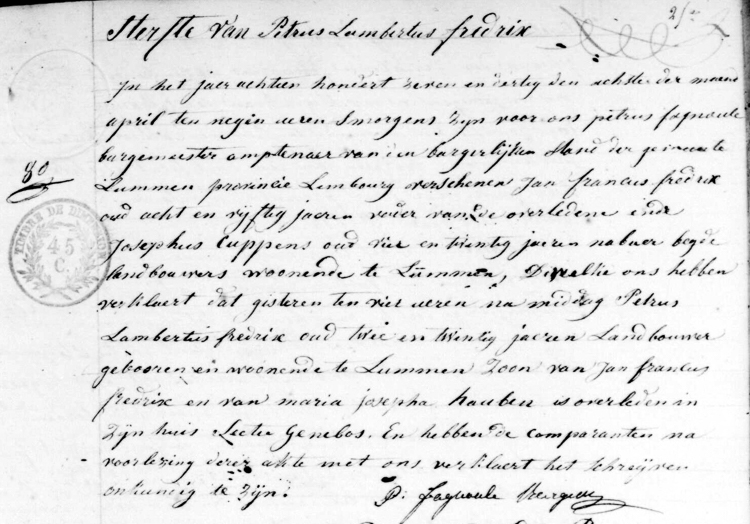 Sterfte van Petrus Lambertus fredrix
In het jaer achtien hondert zeven en dertig den achsten der maend
april ten negen ueren smorgens zijn voor ons petrus fagnoule
burgemeester amptenaer van den burgerlijken stand der gemeente
80
Lummen provincie Limbourg verschenen Jan francus fredrix
oud acht en vyftig jaeren vader van de overledene ende
Josephus Cuppens oud vier en twintig jaeren nabuer beyde
landbouwers woonende te Lummen, Dewelke ons hebben
verklaert dat gisteren ten vier ueren na middag Petrus
Lambertus fredrix oud twee en twintig jaeren Landbouwer
gebooren en woonende te Lummen Zoon van Jan francus
fredrix en van maria josepha hauben is overleden in
zijn huis Sectie Genebos. En hebben de comparanten na
voorlezing dezer akte met ons verklaert het schreijven
onkundig te zijn.
P: fagnoule
TIMBRE DE DIMENSION
45
C.